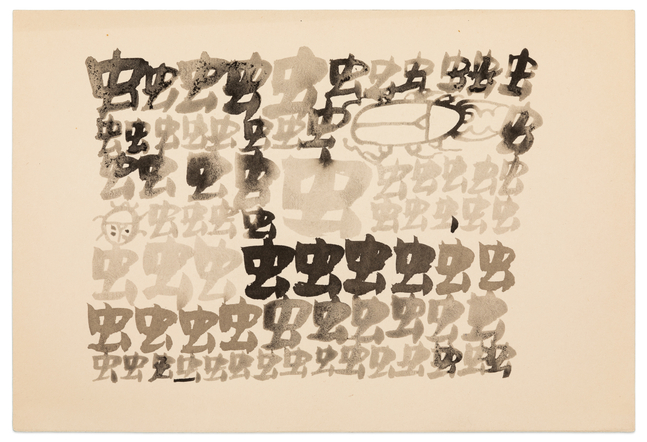 虫虫虫虫虫虫虫虫虫虫虫
虫虫虫虫虫虫虫虫虫
虫虫虫虫虫虫虫虫虫虫
虫虫虫虫虫虫虫虫虫
虫虫虫虫虫虫虫虫虫
虫虫虫虫虫虫虫虫虫虫
虫虫虫虫虫虫虫虫虫虫虫虫虫虫